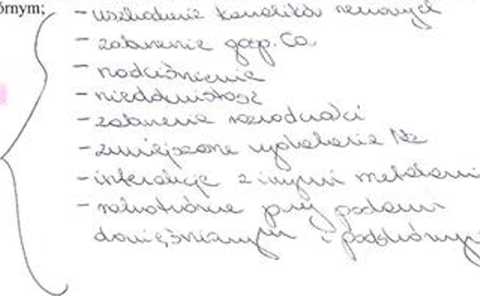 órnym;
- uszkodzenie kanalików nerkowych
- zaburzenie gosp. Ca
- nadciśnienie
- niedokrwistość
- zaburzenia rozrodczości
- zmniejszone wydalanie Na
- interakcje z innymi metalami
- rakotwórcze przy podaniu
domięśniowym i podskórnym